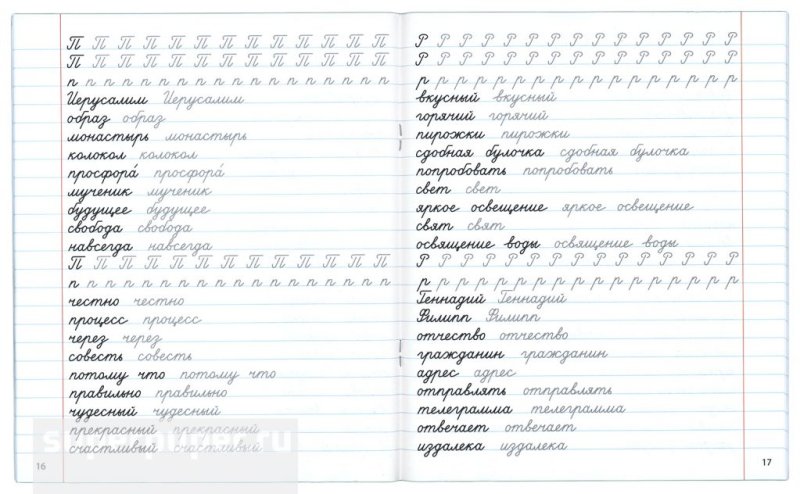 П П П П П П П П П П П П П
П П П П П П П П П П П П П
п п п п п п п п п п п п п п п п п п
Иерусалим Иерусалим
образ образ
монастырь монастырь
колокол колокол
просфора́ просфора́
мученик мученик
будущее будущее
свобода свобода
навсегда навсегда
П П П П П П П П П П П П П
п п п п п п п п п п п п п п п п п п
честно честно
процесс процесс
через через
совесть совесть
потому что потому что
правильно правильно
чудесный чудесный
прекрасный прекрасный
счастливый счастливый
16
Р Р Р Р Р Р Р Р Р Р Р Р Р Р
Р Р Р Р Р Р Р Р Р Р Р Р Р Р
р р р р р р р р р р р р р р р р р р
вкусный вкусный
горячий горячий
пирожки пирожки
сдобная булочка сдобная булочка
попробовать попробовать
свет свет
яркое освещение яркое освещение
свят свят
освящение воды освящение воды
Р Р Р Р Р Р Р Р Р Р Р Р Р Р
р р р р р р р р р р р р р р р р р р
Геннадий Геннадий
Филипп Филипп
отчество отчество
гражданин гражданин
адрес адрес
отправлять отправлять
телеграмма телеграмма
отвечает отвечает
издалека издалека
17